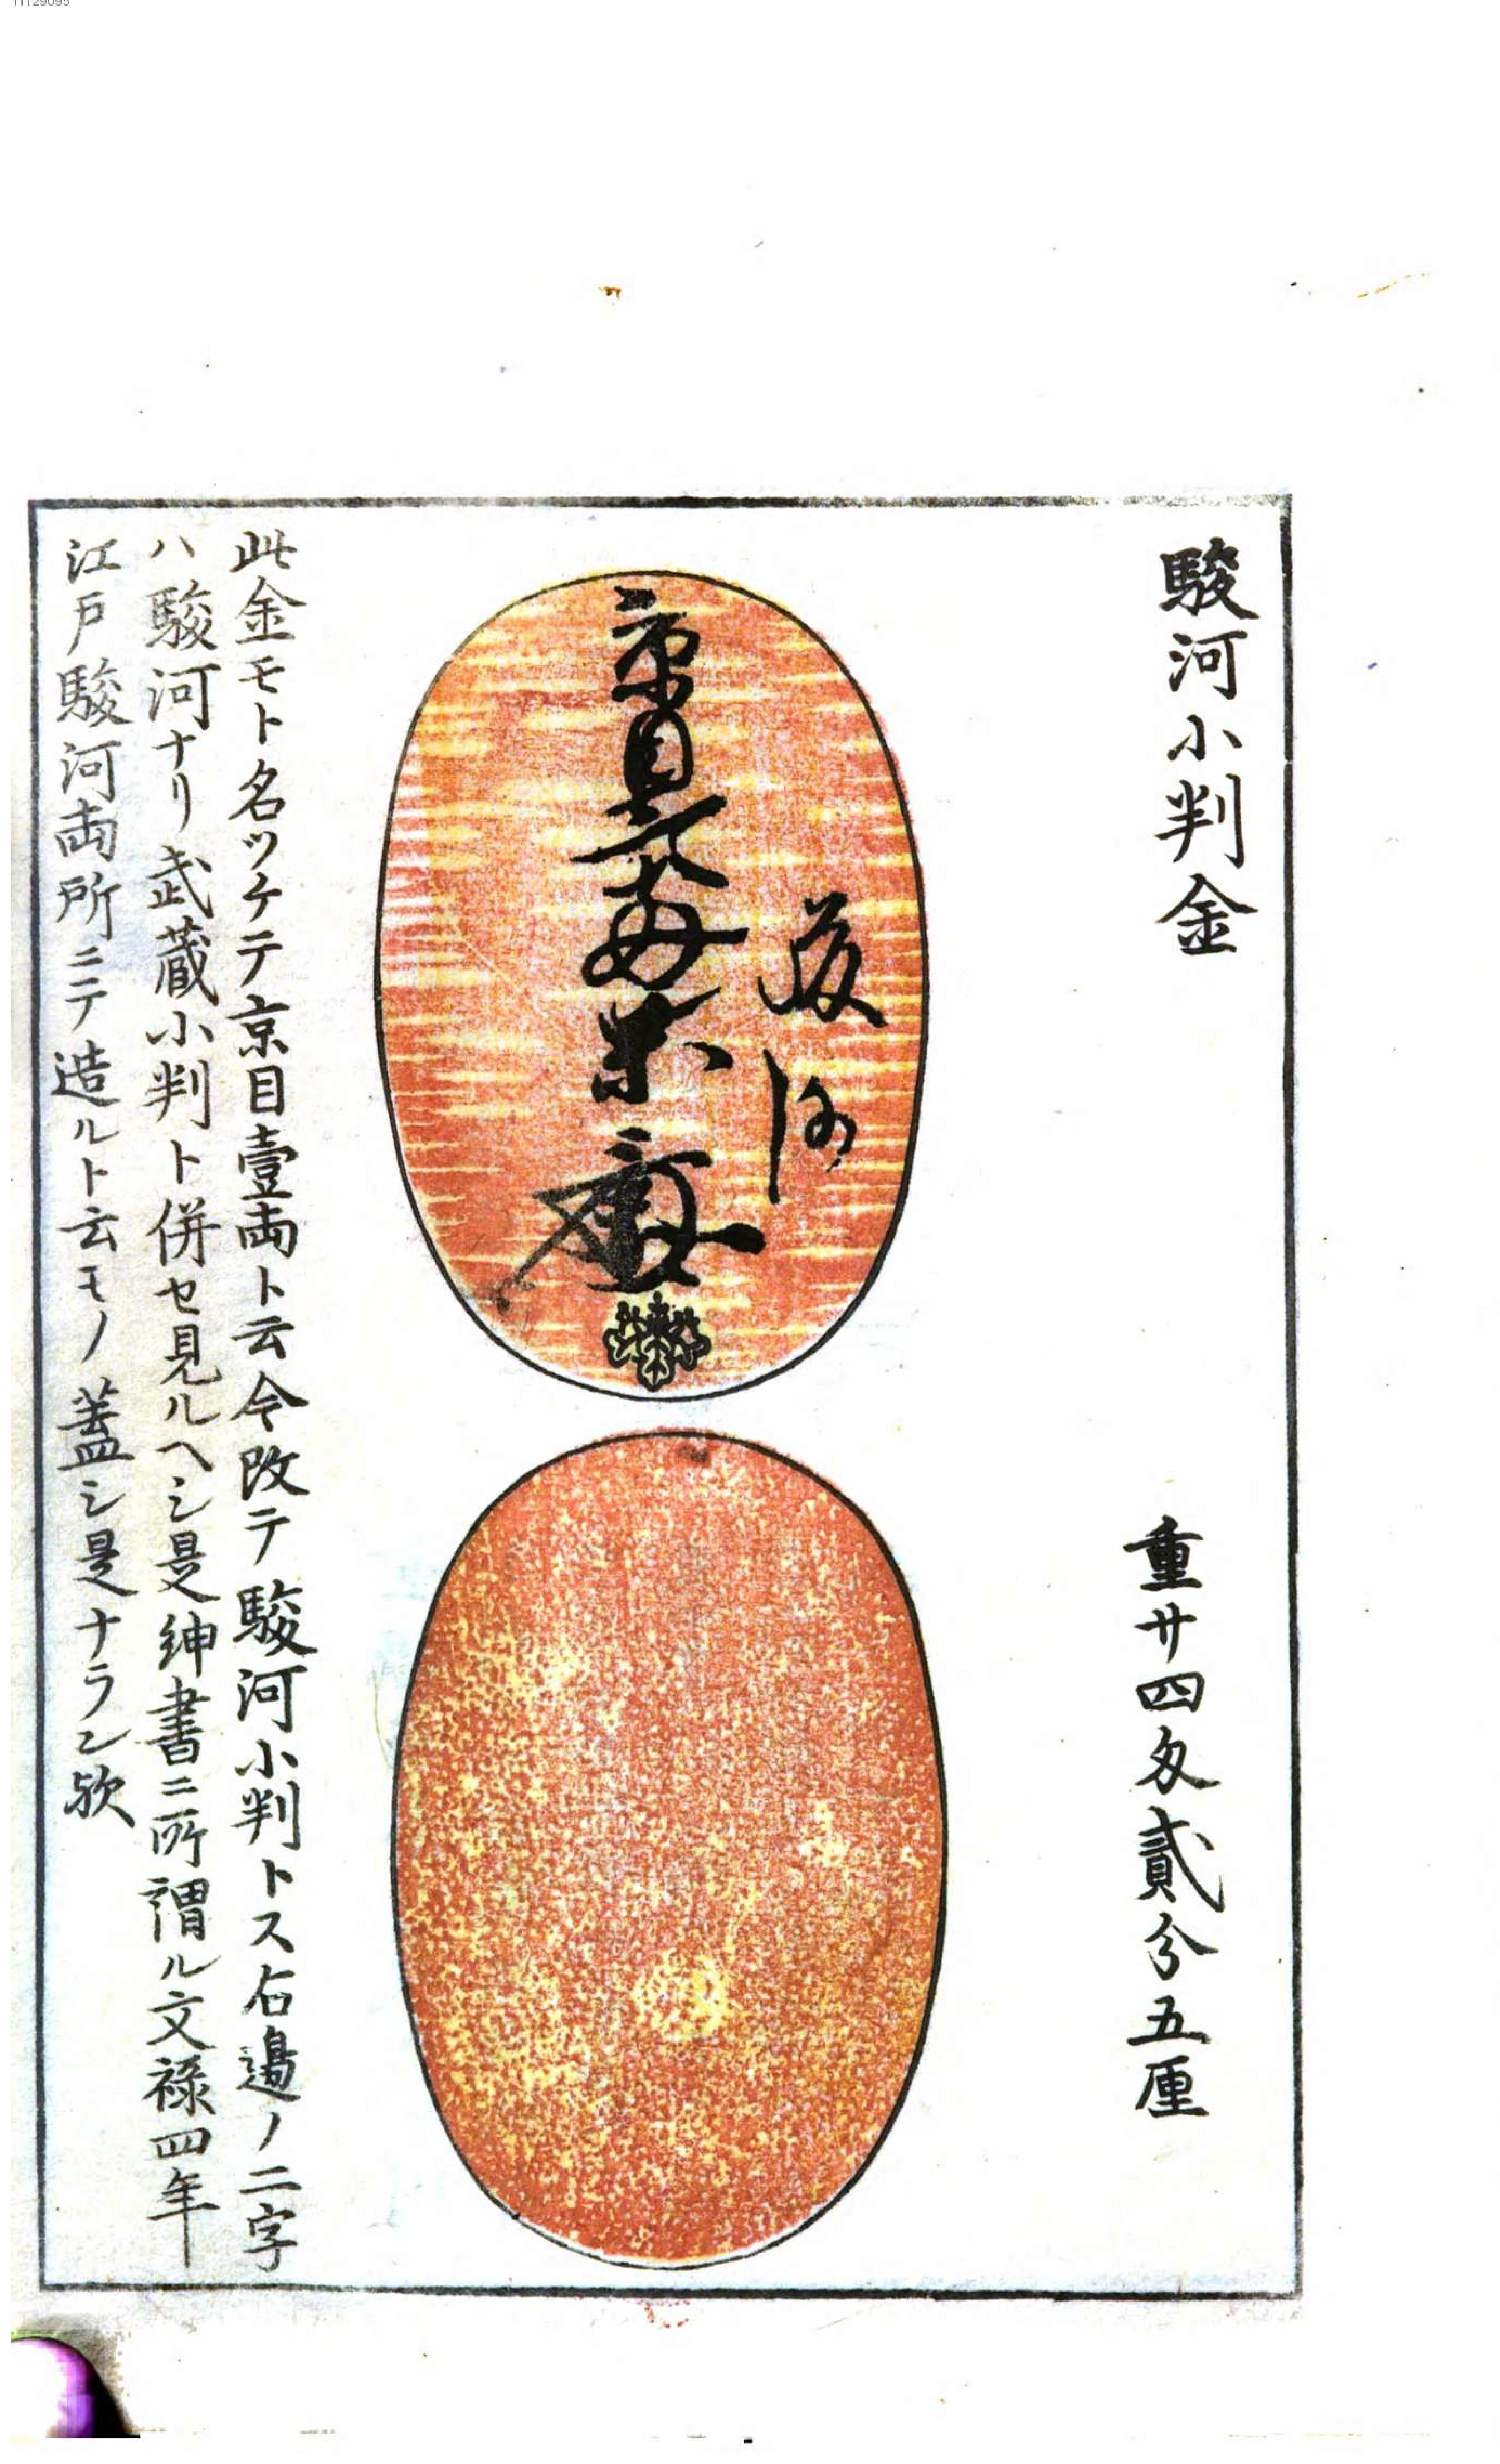 駿河小判金
重廿四匁貳分五厘
駿河
京目壹両
此金モト名ツケテ京目壹両ト云今改テ駿河小判トス右邊ノ二字
ハ駿河ナリ武蔵小判ト併セ見ルヘシ是紳書ニ所謂ル文禄四年
江戸駿河両所ニテ造ルト云モノ蓋シ是ナラン歟